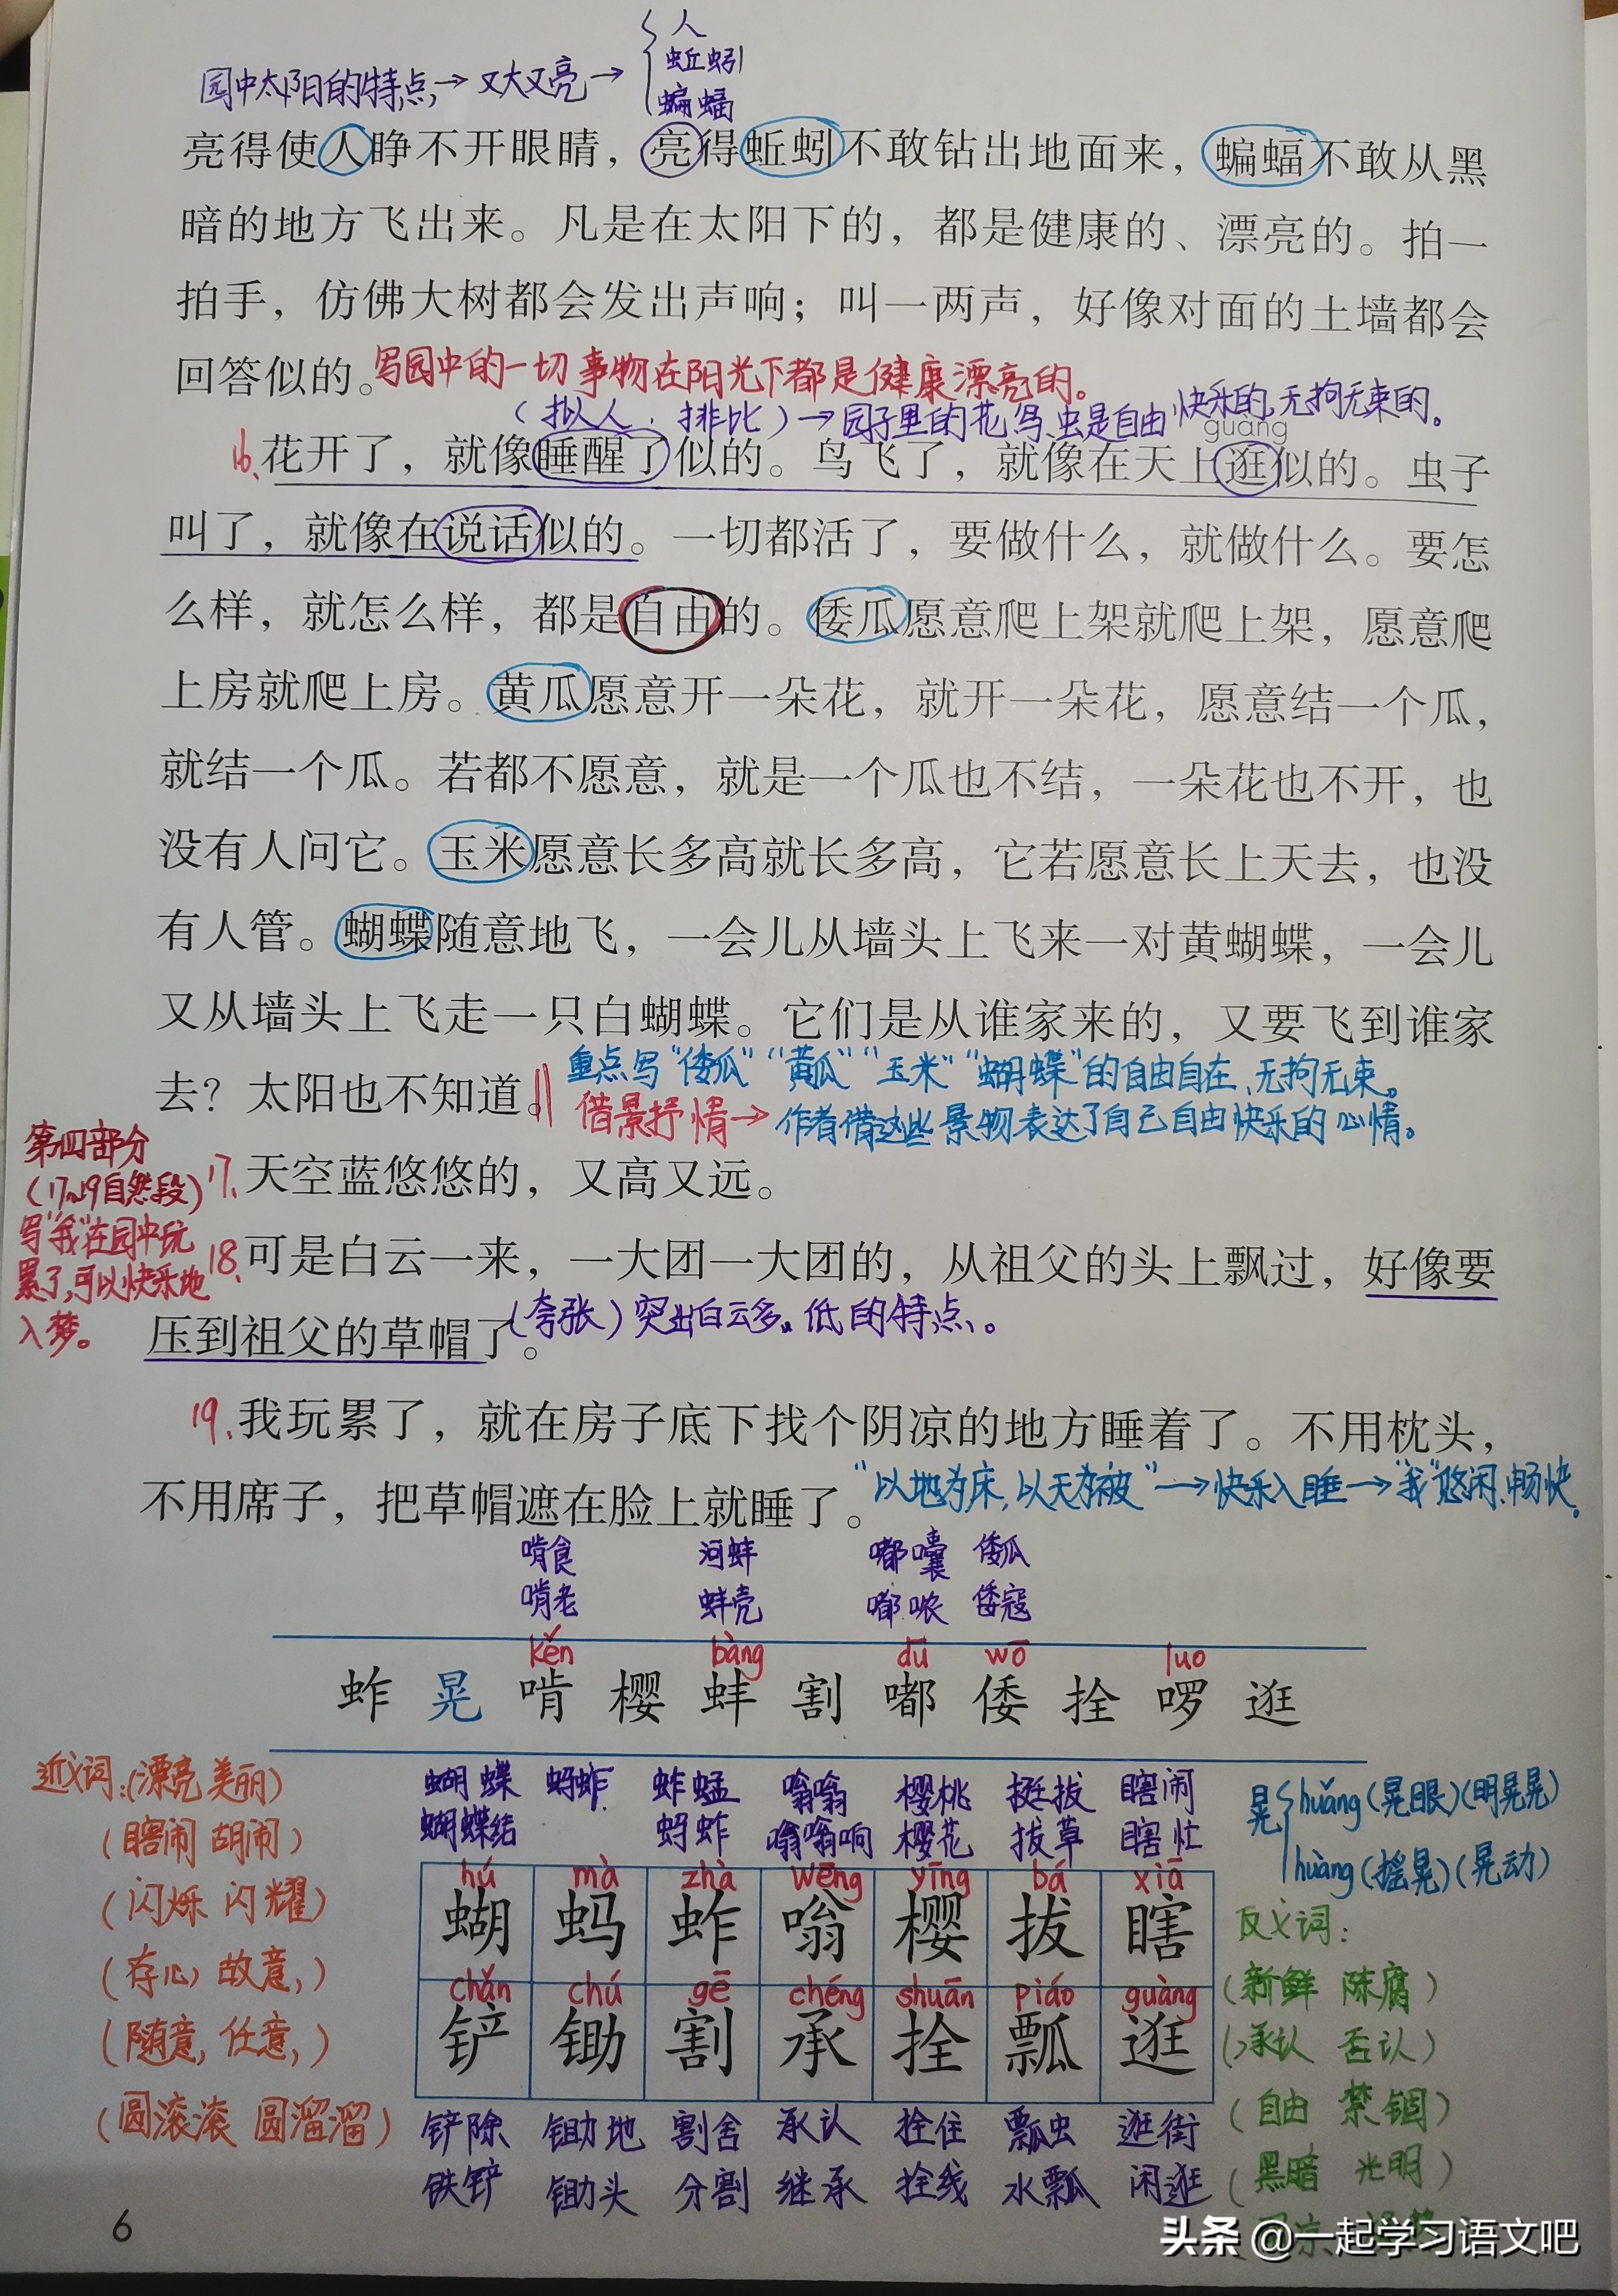 园中太阳的特点→又大又亮→
人
蚯蚓
蝙蝠
亮得使人睁不开眼睛，亮得蚯蚓不敢钻出地面来，蝙蝠不敢从黑
暗的地方飞出来。凡是在太阳下的，都是健康的、漂亮的。拍一
拍手，仿佛大树都会发出声响；叫一两声，好像对面的土墙都会
回答似的。写园中的一切事物在阳光下都是健康漂亮的。
（拟人、排比）→园子里的花、鸟、虫是自由快乐的、无拘无束的。
guàng
16、花开了，就像睡醒了似的。鸟飞了，就像在天上逛似的。虫子
叫了，就像在说话似的。一切都活了，要做什么，就做什么。要怎
么样，就怎么样，都是自由的。倭瓜愿意爬上架就爬上架，愿意爬
上房就爬上房。黄瓜愿意开一朵花，就开一朵花，愿意结一个瓜，
就结一个瓜。若都不愿意，就是一个瓜也不结，一朵花也不开，也
没有人问它。玉米愿意长多高就长多高，它若愿意长上天去，也没
有人管。蝴蝶随意地飞，一会儿从墙头上飞来一对黄蝴蝶，一会儿
又从墙头上飞走一只白蝴蝶。它们是从谁家来的，又要飞到谁家
去？太阳也不知道。
重点写“倭瓜”“黄瓜”“玉米”“蝴蝶”的自由自在、无拘无束。
借景抒情→作者借这些景物表达了自己自由快乐的心情。
第四部分
（17~19自然段）
写“我”在园中玩
累了，可以快乐地
入梦。
17、天空蓝悠悠的，又高又远。
18、可是白云一来，一大团一大团的，从祖父的头上飘过，好像要
压到祖父的草帽了。（夸张）突出白云多、低的特点。
19、我玩累了，就在房子底下找个阴凉的地方睡着了。不用枕头，
不用席子，把草帽遮在脸上就睡了。
“以地为床，以天为被”→快乐入睡→“我”悠闲、畅快。
啃食 河蚌 嘟囔 倭瓜
啃老 蚌壳 嘟哝 倭寇
kěn bàng dū wō luo
蚱 晃 啃 樱 蚌 割 嘟 倭 拴 啰 逛
近义词：（漂亮 美丽）
（瞎闹 胡闹）
（闪烁 闪耀）
（存心 故意）
（随意 任意）
（圆滚滚 圆溜溜）
蝴蝶 蚂蚱 蚱蜢 嗡嗡 樱桃 挺拔 瞎闹
蝴蝶结 蚂蚱 嗡嗡响 樱花 拔草 瞎忙
hú mà zhà wēng yīng bá xiā
蝴 蚂 蚱 嗡 樱 拔 瞎
chǎn chú gē chéng shuān piáo guàng
铲 锄 割 承 拴 瓢 逛
铲除 锄地 割舍 承认 拴住 瓢虫 逛街
铁铲 锄头 分割 继承 拴线 水瓢 闲逛
晃 huǎng（晃眼）（明晃晃）
huàng（摇晃）（晃动）
反义词：
（新鲜 陈腐）
（承认 否认）
（自由 禁锢）
（黑暗 光明）
6
头条 @一起学习语文吧